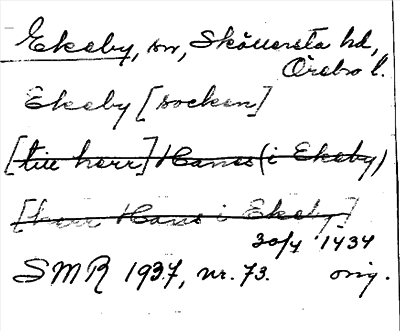 Ekeby, sn, Sköllersta hd,
Örebro l.
Ekeby [socken]
[till herr] Hanes (i Ekeby)
[herr Hans i Ekeby]
30/4 1434
SMR 1937, nr. 73. orig.